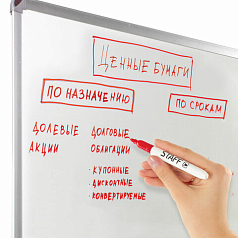 ЦЕННЫЕ БУМАГИ
ПО НАЗНАЧЕНИЮ
ПО СРОКАМ
ДОЛЕВЫЕ
АКЦИИ
ДОЛГОВЫЕ
ОБЛИГАЦИИ
• КУПОННЫЕ
• ДИСКОНТНЫЕ
• КОНВЕРТИРУЕМЫЕ
STAFF